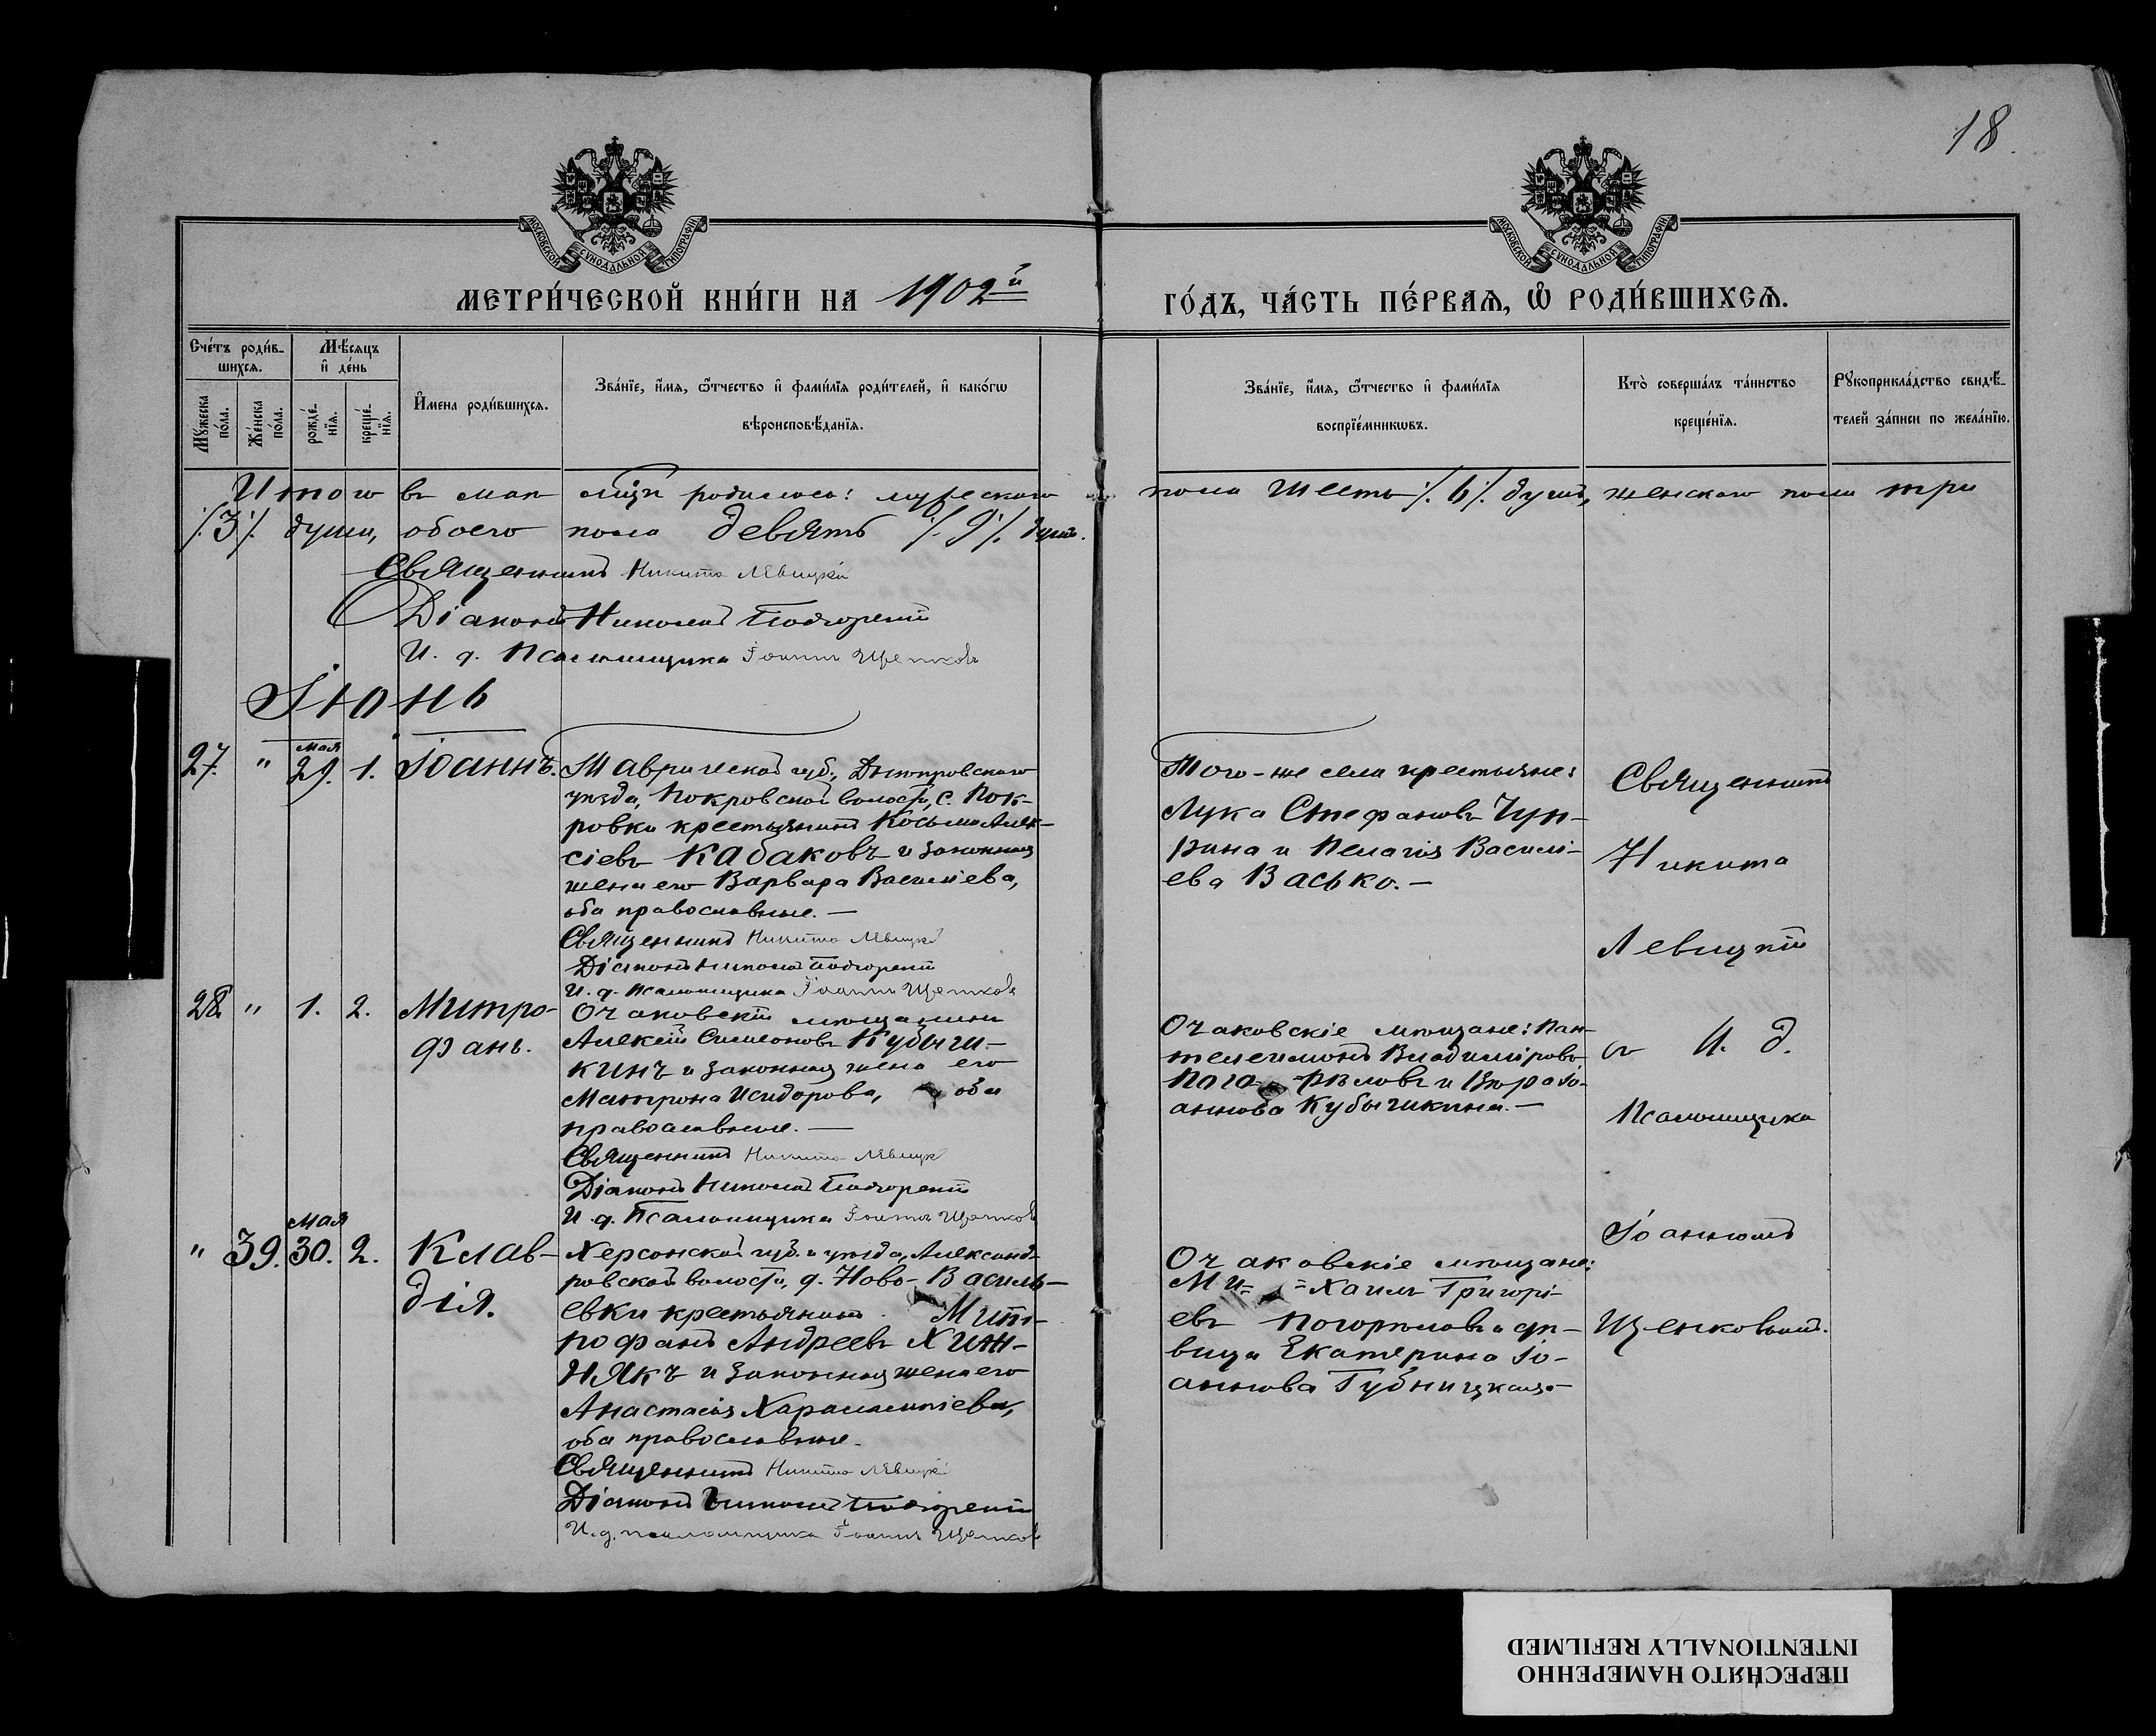 18
МОСКОВСКОЙ СѴНОДАЛЬНОЙ ТИПОГРАФІИ
МОСКОВСКОЙ СѴНОДАЛЬНОЙ ТИПОГРАФІИ
МЕТРИ́ЧЕСКОЙ КНИ́ГИ НА 1902й
ГО́ДЪ, ЧА́СТЬ ПЕ́РВАЯ, Ѡ҆ РОДИ́ВШИХСЯ.
Сче́тъ роди́в-
шихся.
Мѣ́сяцъ
и҆ де́нь
Мꙋ́жеска по́ла.
Же́нска по́ла.
рожде́-нїѧ.
креще́-нїѧ.
И҆мена̀ роди́вшихся.
Зва́нїе, и҆́мя, ѻ҆́тчество и҆ фами́лїя роди́телей, и҆ како́гѡ
вѣроисповѣ́данїя.
Зва́нїе, и҆́мя, ѻ҆́тчество и҆ фами́лїя
воспрїе́мникѡвъ.
Кто̀ соверша́лъ та́инство
креще́нїя.
Рꙋкоприкла́дство свидѣ́-
телей за́писи по жела́нїю.
Итого въ маѣ мѣсяцѣ родилось: мужескаго пола шесть /.6/. душъ, женскаго пола три
/.3/. души, обоего пола девять /.9/. душъ.
Священникъ Никита Левицкій
Діаконъ Николай Подгорекій
И. д. Псаломщика Іоаннъ Щенковъ
Іюнь
27. " мая 29. 1. Іоаннъ.
Таврической губ., Днѣпровскаго
уѣзда, Покровской волости, с. Пок-
ровки крестьянинъ Косьма Алек-
сіевъ Кабаковъ и законная
жена его Варвара Васильева,
оба православные. —
Священникъ Никита Левицкій
Діаконъ Николай Подгорекій
И. д. Псаломщика Іоаннъ Щенковъ
Того-же села крестьяне:
Лука Стефановъ Чуп-
рина и Пелагія Васильі-
ева Васько. —
Священникъ
Никита
Левицкій
28. " 1. 2. Митро-
фанъ.
Очаковскій мѣщанинъ
Алексій Симеоновъ Кубыш-
кинъ и законная жена его
Матрона Исидорова, оба
православные. —
Священникъ Никита Левицкій
Діаконъ Николай Подгорекій
И. д. Псаломщика Іоаннъ Щенковъ
Очаковскіе мѣщане: Пан-
телеимонъ Владиміровъ
Пого-рѣловъ и Вѣра Іо-
аннова Кубышкина. —
съ И. д.
Псаломщика
Іоанномъ
Щенковымъ.
" 39. мая 30. 2. Клав-
дія.
Херсонской губ. и уѣзда, Александ-
ровской волости, д. Ново-Василь-
евки крестьянинъ Мит-
рофанъ Андреевъ Хин-
някъ и законная жена его
Анастасія Харалампіева,
оба православные.
Священникъ Никита Левицкій
Діаконъ Николай Подгорекій
И. д. псаломщика Іоаннъ Щенковъ
Очаковскіе мѣщане:
Ми= =хаилъ Григорі-
евъ Погорѣловъ и дѣ-
вица Екатерина Іо-
аннова Губницкая —
ПЕРЕСНЯТО НАМЕРЕННО
INTENTIONALLY REFILMED